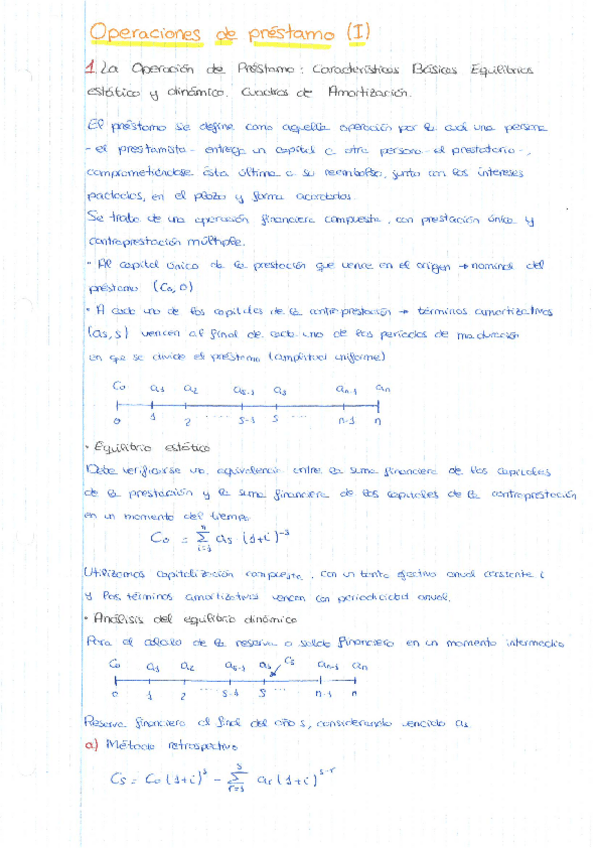 Operaciones de préstamo (I)
1. La Operación de Préstamo: Características Básicas Equilibrios
estático y dinámico. Cuadros de Amortización.
El préstamo se define como aquella operación por la cual una persona
- el prestamista - entrega un capital a otra persona - el prestatario -,
comprometiéndose ésta última a su reembolso, junto con los intereses
pactados, en el plazo y forma acordados.
Se trata de una operación financiera compuesta, con prestación única y
contraprestación múltiple.
· Al capital único de la prestación que vence en el origen → nominal del
préstamo (C₀, 0)
· A cada uno de los capitales de la contraprestación → términos amortizativos
(as, s) vencen al final de cada uno de los períodos de maduración
en que se divide el préstamo (amplitud uniforme)
C₀ a₁ a₂ as-1 as an-1 an
0 1 2 ..... s-1 s ... n-1 n
· Equilibrio estático
Debe verificarse una equivalencia entre la suma financiera de los capitales
de la prestación y la suma financiera de los capitales de la contraprestación
en un momento del tiempo
C₀ = Σ as (1+i)^-s
Utilizamos capitalización compuesta, con un tanto efectivo anual constante i
y los términos amortizativos vencen con periodicidad anual.
· Análisis del equilibrio dinámico
Para el cálculo de la reserva o saldo financiero en un momento intermedio
C₀ a₁ a₂ as-1 as Cs an-1 an
0 1 2 ..... s-1 s ..... n-1 n
Reserva financiera al final del año s, considerando vencido as
a) Método retrospectivo
Cs = C₀ (1+i)^s - Σ ar (1+i)^s-r